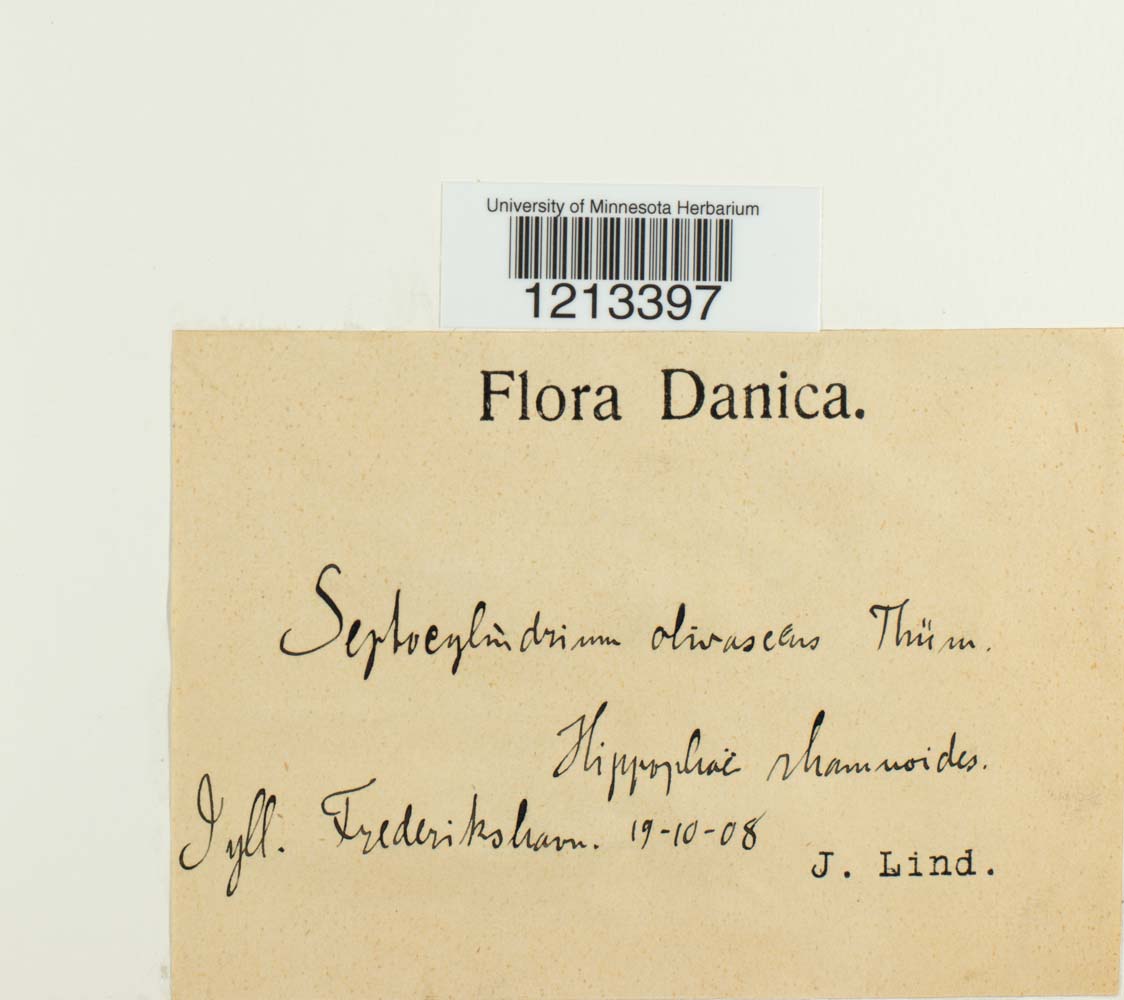 University of Minnesota Herbarium
1213397
Flora Danica.
Septocylindrium olivascens Thüm.
Hippophaë rhamnoides.
Jyll. Frederikshavn. 19-10-08
J. Lind.